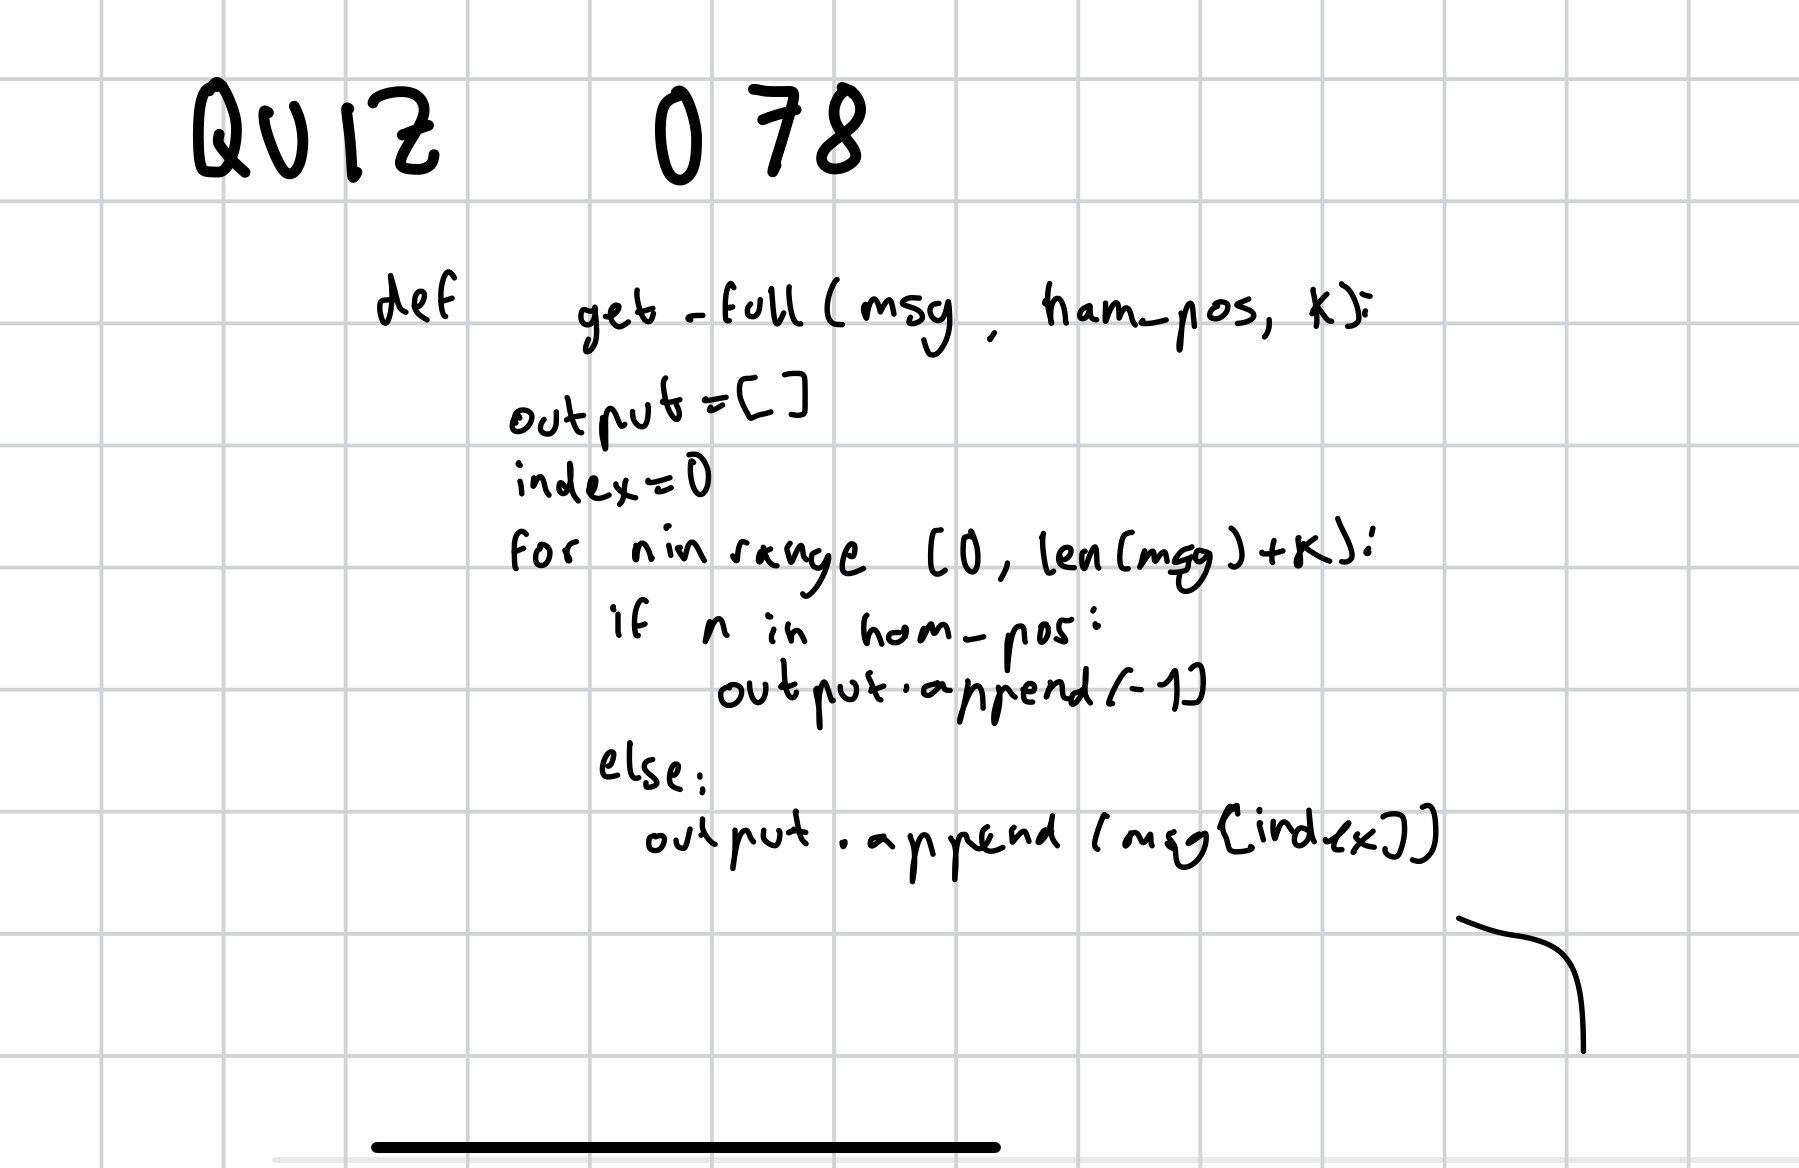 QUIZ 078
def get_full(msg, ham_pos, k):
output=[]
index=0
for n in range (0, len(msg)+k):
if n in ham_pos:
output.append(-1)
else:
output.append(msg[index])